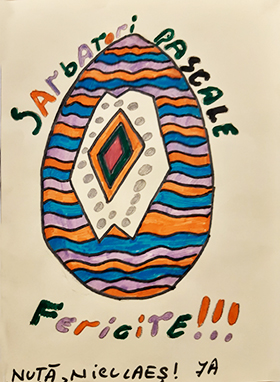 SArbAtori PASCALE
FericiTE!!!
NUTĂ, NiCULAEȘ! 7A